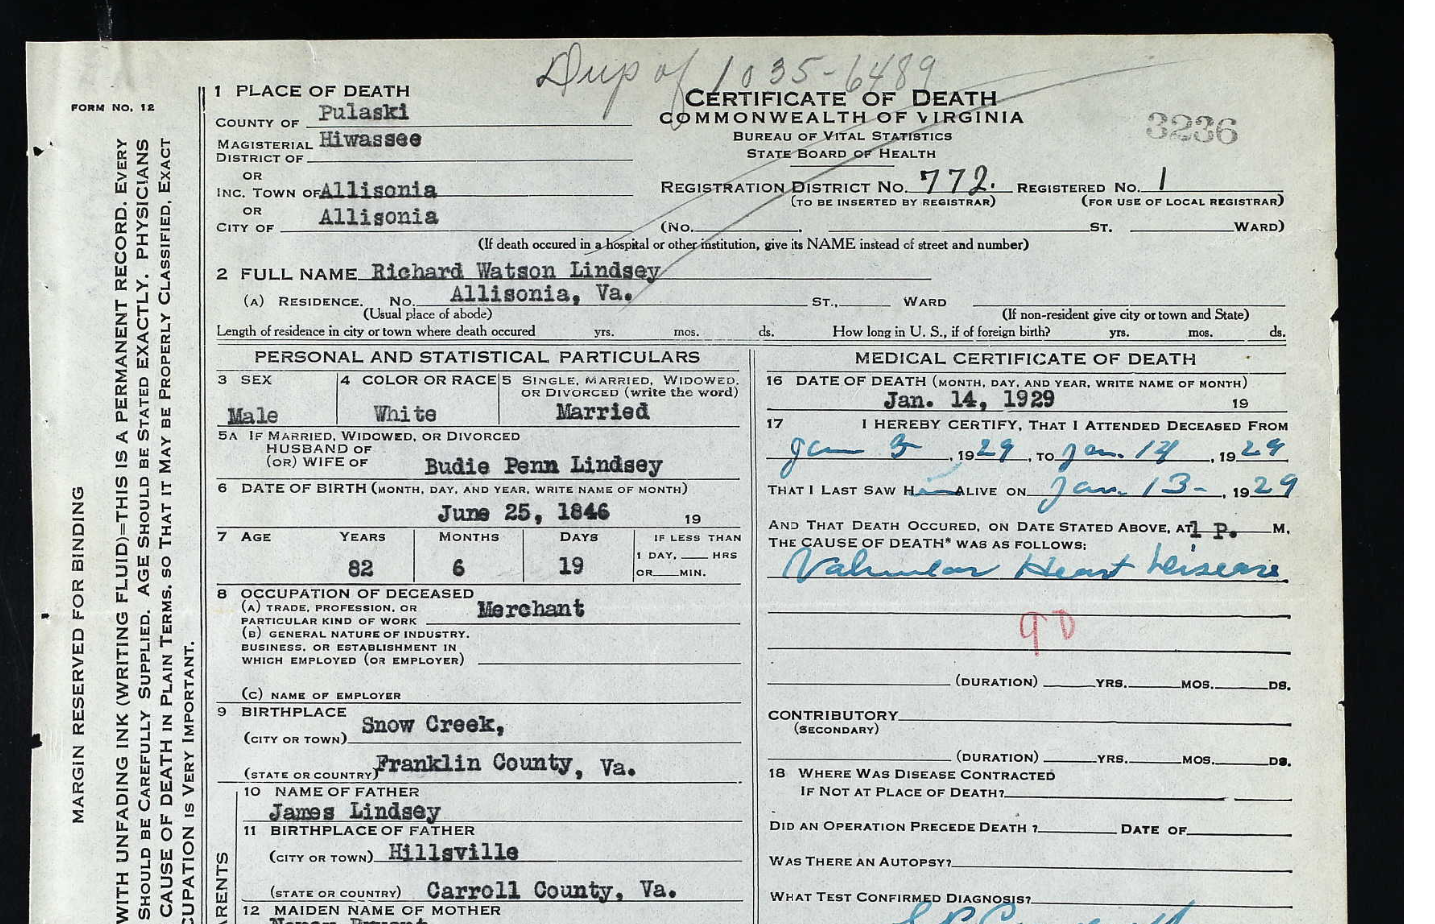 Dup of 1035-6489
FORM NO. 12
MARGIN RESERVED FOR BINDING
WITH UNFADING INK (WRITING FLUID)=THIS IS A PERMANENT RECORD. EVERY
SHOULD BE CAREFULLY SUPPLIED. AGE SHOULD BE STATED EXACTLY. PHYSICIANS
CAUSE OF DEATH IN PLAIN TERMS. SO THAT IT MAY BE PROPERLY CLASSIFIED, EXACT
CUPATION IS VERY IMPORTANT.
1 PLACE OF DEATH
COUNTY OF Pulaski
MAGISTERIAL DISTRICT OF Hiwassee
OR
INC. TOWN OF Allisonia
OR
CITY OF Allisonia
CERTIFICATE OF DEATH
COMMONWEALTH OF VIRGINIA
BUREAU OF VITAL STATISTICS
STATE BOARD OF HEALTH
3236
REGISTRATION DISTRICT NO. 772. REGISTERED NO. 1
(TO BE INSERTED BY REGISTRAR) (FOR USE OF LOCAL REGISTRAR)
(NO. ST. WARD)
(If death occured in a hospital or other institution, give its NAME instead of street and number)
2 FULL NAME Richard Watson Lindsey
(A) RESIDENCE. NO. Allisonia, Va. ST., WARD
(Usual place of abode) (If non-resident give city or town and State)
Length of residence in city or town where death occured yrs. mos. ds. How long in U. S., if of foreign birth? yrs. mos. ds.
PERSONAL AND STATISTICAL PARTICULARS
3 SEX 4 COLOR OR RACE 5 SINGLE, MARRIED, WIDOWED, OR DIVORCED (write the word)
Male White Married
5A IF MARRIED, WIDOWED, OR DIVORCED
HUSBAND OF
(OR) WIFE OF Budie Penn Lindsey
6 DATE OF BIRTH (MONTH, DAY, AND YEAR, WRITE NAME OF MONTH)
June 25, 1846 19
7 AGE YEARS MONTHS DAYS IF LESS THAN
1 DAY, HRS
82 6 19 OR MIN.
8 OCCUPATION OF DECEASED
(A) TRADE, PROFESSION, OR
PARTICULAR KIND OF WORK Merchant
(B) GENERAL NATURE OF INDUSTRY.
BUSINESS, OR ESTABLISHMENT IN
WHICH EMPLOYED (OR EMPLOYER)
(C) NAME OF EMPLOYER
9 BIRTHPLACE
(CITY OR TOWN) Snow Creek,
(STATE OR COUNTRY) Franklin County, Va.
PARENTS
10 NAME OF FATHER
James Lindsey
11 BIRTHPLACE OF FATHER
(CITY OR TOWN) Hillsville
(STATE OR COUNTRY) Carroll County, Va.
12 MAIDEN NAME OF MOTHER
MEDICAL CERTIFICATE OF DEATH
16 DATE OF DEATH (MONTH, DAY, AND YEAR, WRITE NAME OF MONTH)
Jan. 14, 1929 19
17 I HEREBY CERTIFY, THAT I ATTENDED DECEASED FROM
Jan 3, 1929, TO Jan. 14, 1929
THAT I LAST SAW Him ALIVE ON Jan. 13-, 1929
AND THAT DEATH OCCURED, ON DATE STATED ABOVE, AT 1 P. M.
THE CAUSE OF DEATH* WAS AS FOLLOWS:
Valvular Heart Disease
90
(DURATION) YRS. MOS. DS.
CONTRIBUTORY
(SECONDARY)
(DURATION) YRS. MOS. DS.
18 WHERE WAS DISEASE CONTRACTED
IF NOT AT PLACE OF DEATH?
DID AN OPERATION PRECEDE DEATH ? DATE OF
WAS THERE AN AUTOPSY?
WHAT TEST CONFIRMED DIAGNOSIS?